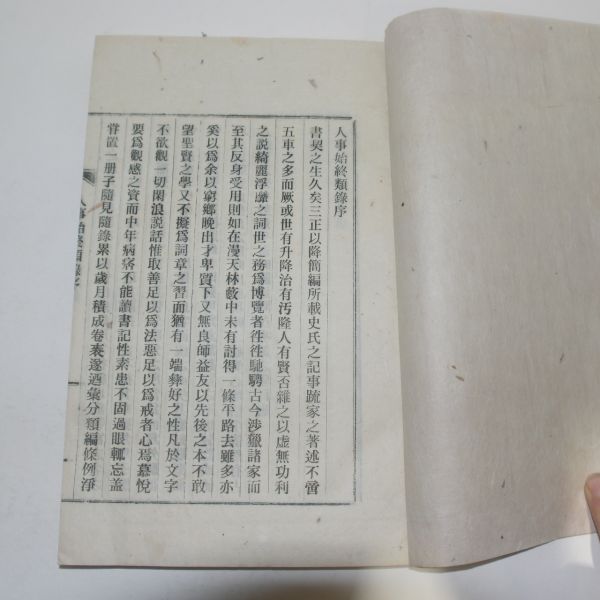 人事始終類錄序
書契之生久矣三正以降簡編所載史氏之記事䟽家之著述不啻
五車之多而厥或世有升降治有汚隆人有賢否雜之以虛無功利
之說綺麗浮靡之詞世之務爲博覽者徃徃馳騁古今涉獵諸家而
至其反身受用則如在漫天林藪中未有討得一條平路去雖多亦
奚以爲余以窮鄕晚出才卑質下又無良師益友以先後之本不敢
望聖賢之學又不擬爲詞章之習而猶有一端彝好之性凡於文字
不欲觀一切閑浪說話惟取善足以爲法惡足以爲戒者心焉慕悅
要爲觀感之資而中年病痞不能讀書記性素患不固過眼輒忘盖
甞置一册子隨見隨錄累以歲月積成卷袠遂迺彙分類編條例淨
人事始終類錄序